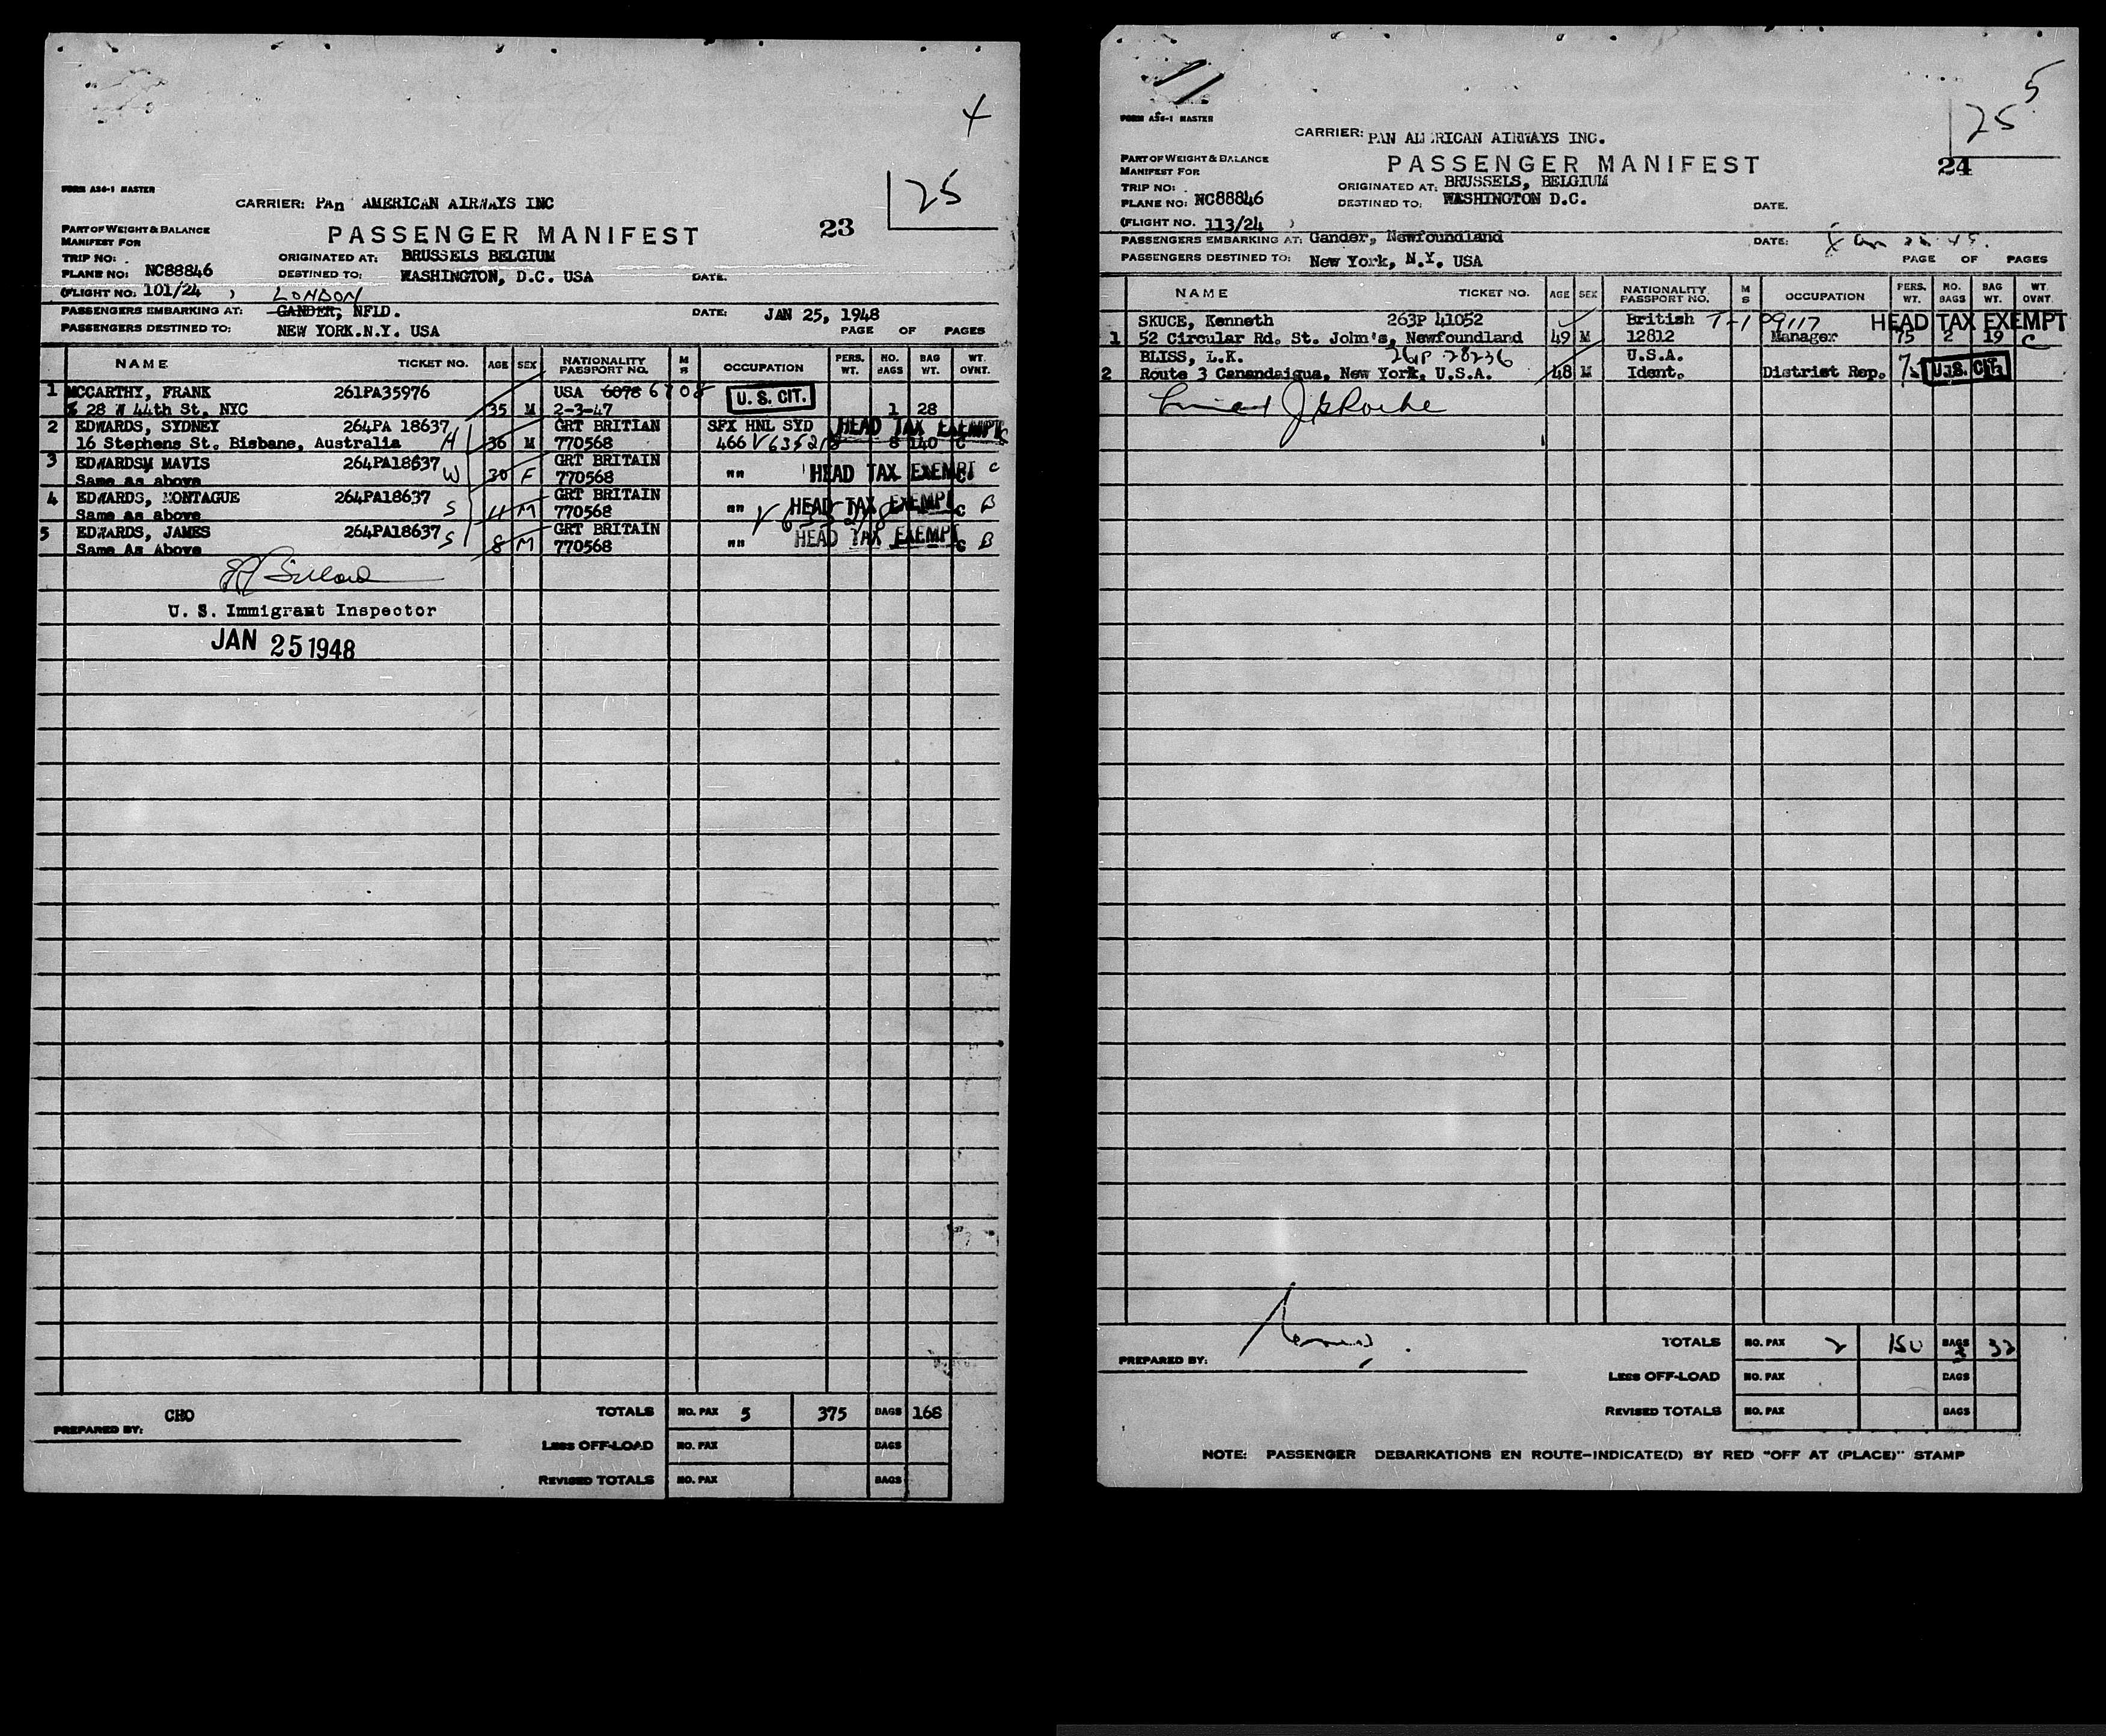 4
25
FORM AS6-1 MASTER
CARRIER: PAn AMERICAN AIRWAYS INC
23
PART OF WEIGHT & BALANCE
MANIFEST FOR
PASSENGER MANIFEST
TRIP NO:
ORIGINATED AT: BRUSSELS BELGIUM
PLANE NO: NC88846
DESTINED TO: WASHINGTON, D.C. USA
DATE.
(FLIGHT NO. 101/24 )
LONDON
PASSENGERS EMBARKING AT: GANDER, NFLD.
DATE: JAN 25, 1948
PASSENGERS DESTINED TO: NEW YORK.N.Y. USA
PAGE OF PAGES
NAME TICKET NO. AGE SEX NATIONALITY PASSPORT NO. M S OCCUPATION PERS. WT. NO. BAGS BAG WT. WT. OVNT.
1 MCCARTHY, FRANK 261PA35976 USA 6078 6708 U. S. CIT.
% 28 W 44th St, NYC 35 M 2-3-47 1 28
2 EDWARDS, SYDNEY 264PA 18637 GRT BRITIAN SFX HNL SYD HEAD TAX EXEMPT
16 Stephens St. Bisbane, Australia H 36 M 770568 466 V635218 8 140 C
3 EDWARDSM MAVIS 264PA18637 GRT BRITAIN HEAD TAX EXEMPT C
Same as above W 30 F 770568 "" C
4 EDWARDS, MONTAGUE 264PA18637 GRT BRITAIN HEAD TAX EXEMPT B
Same as above S 11 M 770568 "" C
5 EDWARDS, JAMES 264PA18637 GRT BRITAIN HEAD TAX EXEMPT B
Same As Above S 8 M 770568 "" C
U. S. Immigrant Inspector
JAN 25 1948
CHO
PREPARED BY:
TOTALS NO. PAX 5 375 BAGS 168
LESS OFF-LOAD NO. PAX BAGS
REVISED TOTALS NO. PAX BAGS
5
25
FORM AS6-1 MASTER
CARRIER: PAN AMERICAN AIRWAYS INC.
24
PART OF WEIGHT & BALANCE
MANIFEST FOR
PASSENGER MANIFEST
TRIP NO:
ORIGINATED AT: BRUSSELS, BELGIUM
PLANE NO: NC88846
DESTINED TO: WASHINGTON D.C.
DATE.
(FLIGHT NO. 113/24 )
PASSENGERS EMBARKING AT: Gander, Newfoundland
DATE:
PASSENGERS DESTINED TO: New York, N.Y. USA
PAGE OF PAGES
NAME TICKET NO. AGE SEX NATIONALITY PASSPORT NO. M S OCCUPATION PERS. WT. NO. BAGS BAG WT. WT. OVNT.
SKUCE, Kenneth 263P 41052 British T-199117 HEAD TAX EXEMPT
1 52 Circular Rd. St. John's, Newfoundland 49 M 12812 Manager 75 2 19 C
BLISS, L.K. 261P 28236 U.S.A.
2 Route 3 Canandaigua, New York, U.S.A. 48 M Ident. District Rep. U.S. CIT.
PREPARED BY:
TOTALS NO. PAX 2 150 BAGS 3 32
LESS OFF-LOAD NO. PAX BAGS
REVISED TOTALS NO. PAX BAGS
NOTE: PASSENGER DEBARKATIONS EN ROUTE-INDICATE(D) BY RED "OFF AT (PLACE)" STAMP